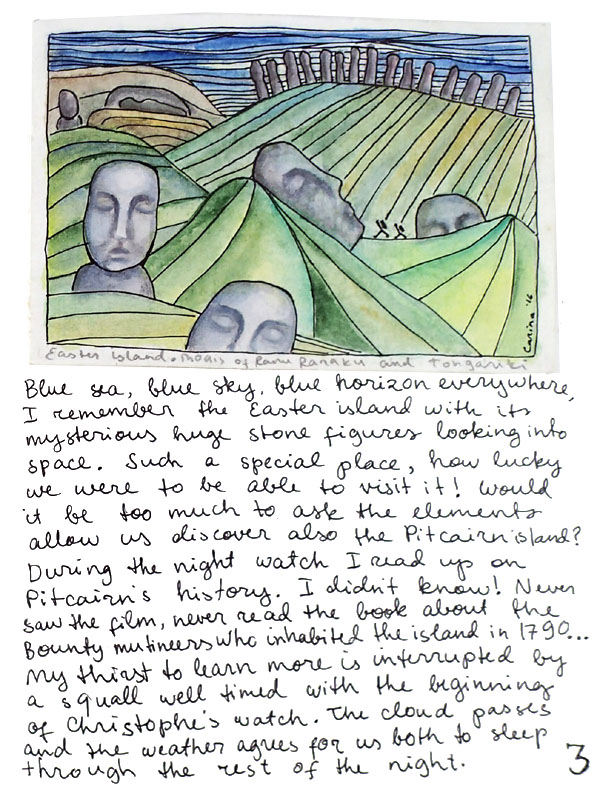 Carina '16
Easter island. Moais of Ranu Raraku and Tongariki
Blue sea, blue sky, blue horizon everywhere,
I remember the Easter island with its
mysterious huge stone figures looking into
space. Such a special place, how lucky
we were to be able to visit it! Would
it be too much to ask the elements
allow us discover also the Pitcairn island?
During the night watch I read up on
Pitcairn's history. I didn't know! Never
saw the film, never read the book about the
Bounty mutineers who inhabited the island in 1790...
My thirst to learn more is interrupted by
a squall well timed with the beginning
of Christophe's watch. The cloud passes
and the weather agrees for us both to sleep
through the rest of the night.
3